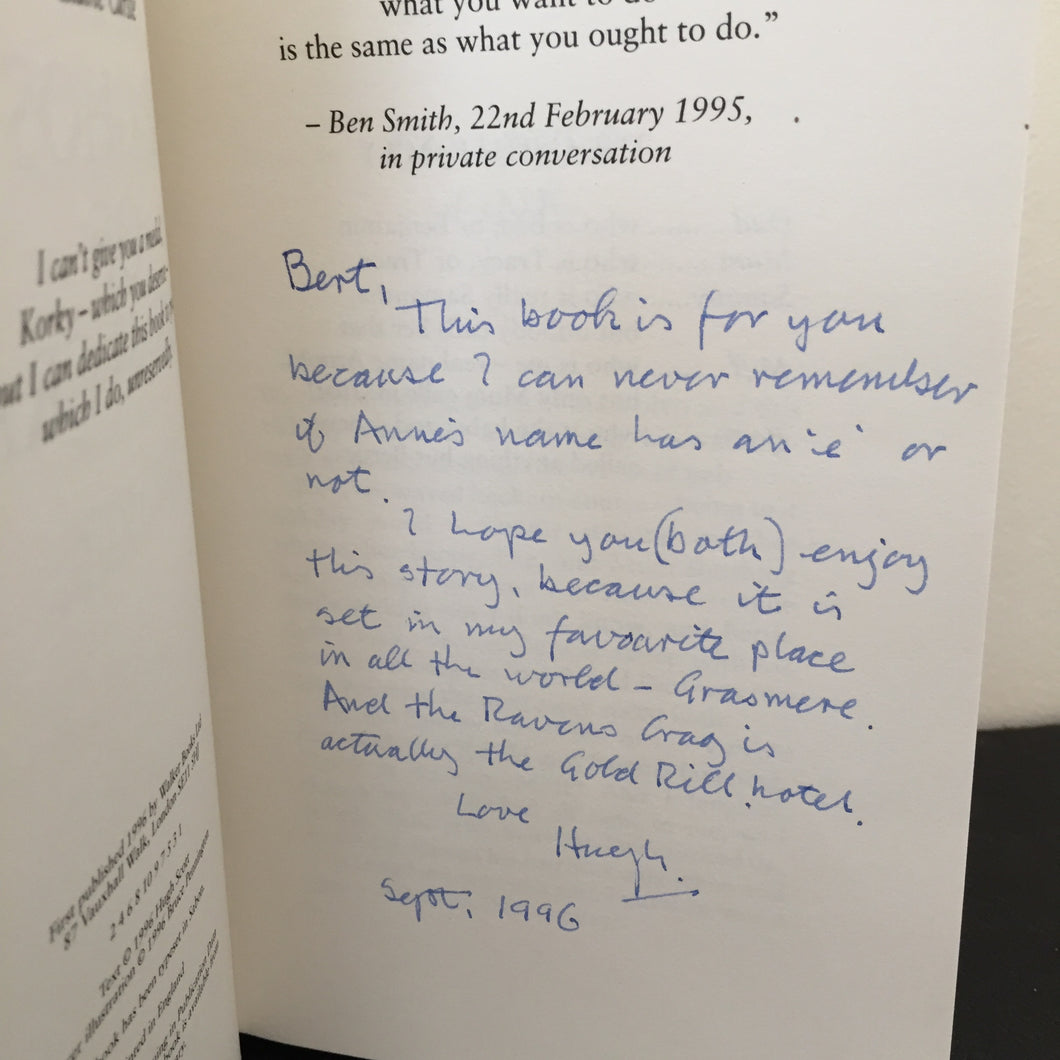 what you want to do
is the same as what you ought to do.”
– Ben Smith, 22nd February 1995,
in private conversation
Bert,
This book is for you
because I can never remember
if Anne's name has an 'e' or
not.
I hope you (both) enjoy
this story, because it is
set in my favourite place
in all the world – Grasmere.
And the Ravens Crag is
actually the Gold Rill hotel.
Love
Hugh.
Sept. 1996
I can't give you a medal,
Korky – which you deserve –
but I can dedicate this book to
which I do, unreservedly
First published 1996 by Walker Books Ltd
87 Vauxhall Walk, London SE11 5HJ
2 4 6 8 10 9 7 5 3 1
Text © 1996 Hugh Scott
illustration © 1996 Bruce Pennington
book has been typeset in Sabon.
Printed in England
in Publication Data
book is available from